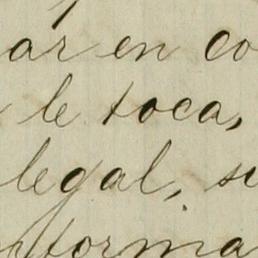 ar en co
le toca,
legal, si
nforma